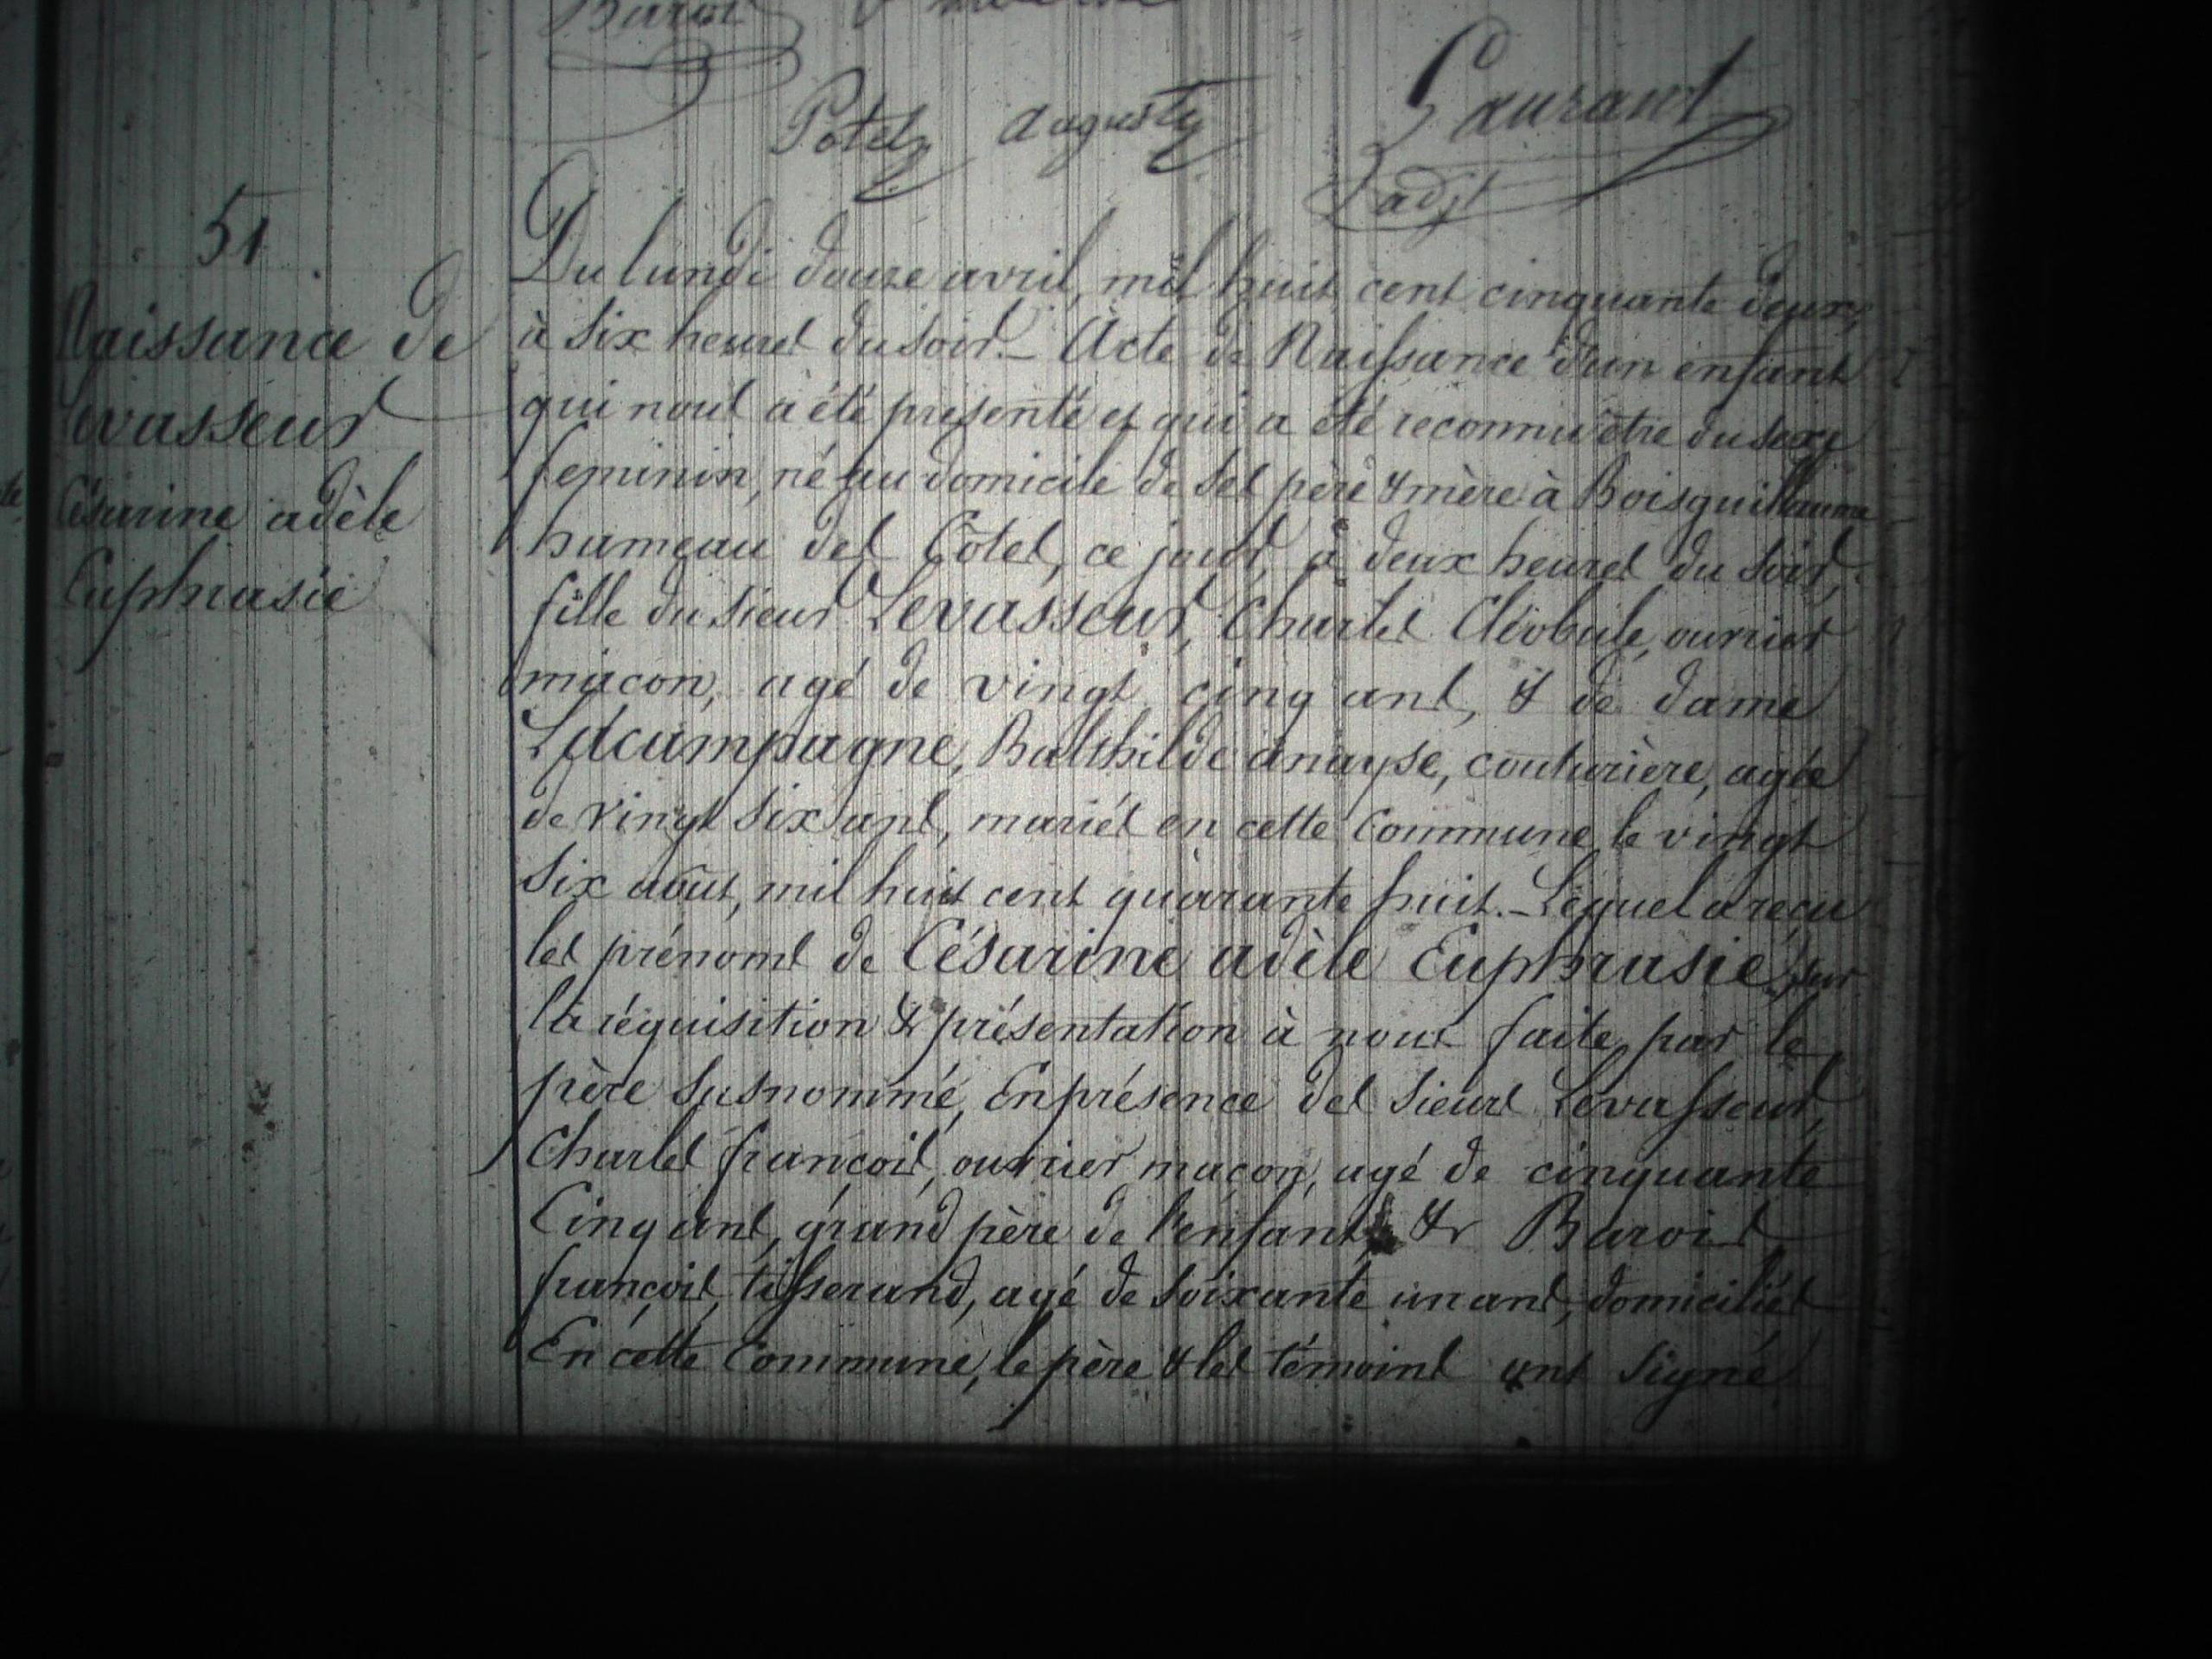 Baroit
Potel auguste
Laurant
adjt
51
Naissance de
Levasseur
Césarine adèle
Euphrasie
Du lundi douze avril, mil huit cent cinquante deux,
à six heures du soir. - Acte de Naissance d'un enfant
qui nous a été présenté et qui a été reconnu être du sexe
feminin, né au domicile de ses père & mère à Boisguillaume
hameau des Côtes, ce jour, à deux heures du soir,
fille du sieur Levasseur, Charles Cléobule, ouvrier
maçon, agé de vingt cinq ans, & de dame
Balthilde anayse, couturière, agée
de vingt six ans, mariés en cette Commune le vingt
six août, mil huit cent quarante huit. - Lequel a reçu
les prénoms de Césarine adèle Euphrasie, sur
la réquisition & présentation à nous faite par le
père susnommé, En présence des sieurs Levasseur,
Charles françois, ouvrier maçon, agé de cinquante
Cinq ans, grand père de l'enfant, & Baroit
françois, tisserand, agé de soixante un ans, domiciliés
En cette Commune, le père & les témoins ont signé